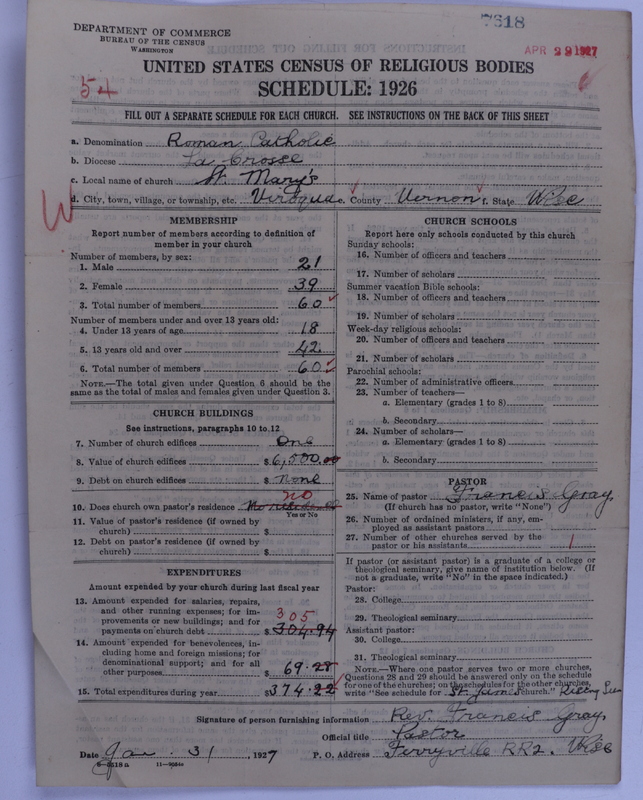 7618
DEPARTMENT OF COMMERCE
BUREAU OF THE CENSUS
WASHINGTON
APR 22 1927
UNITED STATES CENSUS OF RELIGIOUS BODIES
54
SCHEDULE: 1926
FILL OUT A SEPARATE SCHEDULE FOR EACH CHURCH. SEE INSTRUCTIONS ON THE BACK OF THIS SHEET
a. Denomination Roman Catholic
b. Diocese La Crosse
c. Local name of church St. Mary's
d. City, town, village, or township, etc. Viroqua e. County Vernon f. State Wisc
W
MEMBERSHIP
Report number of members according to definition of
member in your church
Number of members, by sex:
1. Male 21
2. Female 39
3. Total number of members 60
Number of members under and over 13 years old:
4. Under 13 years of age 18
5. 13 years old and over 42
6. Total number of members 60
NOTE.—The total given under Question 6 should be
the same as the total of males and females given under Question 3.
CHURCH BUILDINGS
See instructions, paragraphs 10 to 12
7. Number of church edifices One
8. Value of church edifices $6,500.00
9. Debt on church edifices $ None
no
10. Does church own pastor's residence
Yes or No
11. Value of pastor's residence (if owned by
church) $
12. Debt on pastor's residence (if owned by
church) $
EXPENDITURES
Amount expended by your church during last fiscal year
13. Amount expended for salaries, repairs,
and other running expenses; for im-
provements or new buildings; and for
305
payments on church debt $304.94
14. Amount expended for benevolences, in-
cluding home and foreign missions; for
denominational support; and for all
other purposes 69.28
15. Total expenditures during year $374.22
CHURCH SCHOOLS
Report here only schools conducted by this church
Sunday schools:
16. Number of officers and teachers
17. Number of scholars
Summer vacation Bible schools:
18. Number of officers and teachers
19. Number of scholars
Week-day religious schools:
20. Number of officers and teachers
21. Number of scholars
Parochial schools:
22. Number of administrative officers
23. Number of teachers—
a. Elementary (grades 1 to 8)
b. Secondary
24. Number of scholars—
a. Elementary (grades 1 to 8)
b. Secondary
PASTOR
25. Name of pastor Francis Gray
(If church has no pastor, write "None")
26. Number of ordained ministers, if any, em-
ployed as assistant pastors
27. Number of other churches served by the
pastor or his assistants 1
If pastor (or assistant pastor) is a graduate of a college or
theological seminary, give name of institution below. (If
not a graduate, write "No" in the space indicated.)
Pastor:
28. College
29. Theological seminary
Assistant pastor:
30. College
31. Theological seminary
NOTE.—Where one pastor serves two or more churches,
Questions 28 and 29 should be answered only on the schedule
for one of the churches; on the schedules for the other churches,
write "See schedule for St. James church." Rising Sun
Signature of person furnishing information Rev. Francis Gray
Official title Pastor
Date Jan. 31, 1927 P. O. Address Ferryville RR2. Wisc